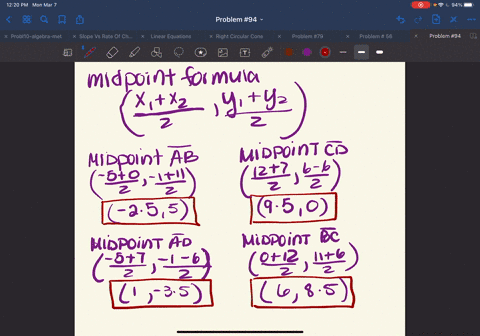 12:20 PM Mon Mar 7
94%
Problem #94
Prob#10-algebra-met
Slope Vs Rate Of Ch...
Linear Equations
Right Circular Cone
Problem #79
Problem # 98
Problem #94
midpoint formula
(x₁+x₂/2, y₁+y₂/2)
MIDPOINT AB
(-5+0/2, -1+11/2)
(-2.5, 5)
MIDPOINT CD
(12+7/2, 6-6/2)
(9.5, 0)
MIDPOINT AD
(-5+7/2, -1-6/2)
(1, -3.5)
MIDPOINT BC
(0+12/2, 11+6/2)
(6, 8.5)